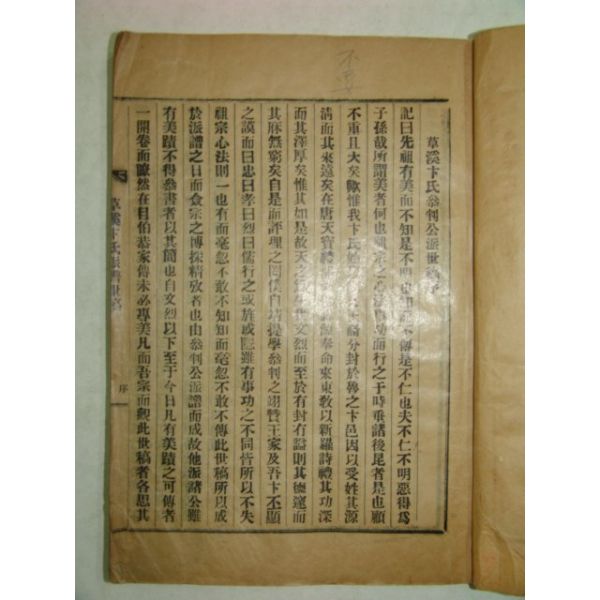 不要
草溪卞氏叅判公派世稿序
記曰先祖有美而不知是不明也知而不傳是不仁也夫不仁不明惡得爲
子孫哉所謂美者何也祖宗之心法事功而行之于時垂諸後昆者是也顧
不重且大矣歟惟我卞氏始以 分封於魯之卞邑因以受姓其源
淸而其來遠矣在唐天寶 奉命來東敎以新羅詩禮其功深
而其澤厚矣惟其如是故天之 文烈而至於有封有諡則其德遠而
其庥無窮矣自是而評理之 提學叅判之翊贊王家及吾卞丕顯
之謨而曰忠曰孝曰烈曰儒行之或旌或隱雖有事功之不同皆所以不失
祖宗心法則一也有而毫忽不敢不知知而毫忽不敢不傳此世稿所以成
於派譜之日而僉宗之博採精攷者也由叅判公派譜而成故他派諸公雖
有美蹟不得叅書者以其簡也自文烈以下至于今日凡有美蹟之可傳者
一開卷而瞭然在目伯恭家傳未必專美凡而吾宗而觀此世稿者各思其
草溪卞氏派譜世稿 序